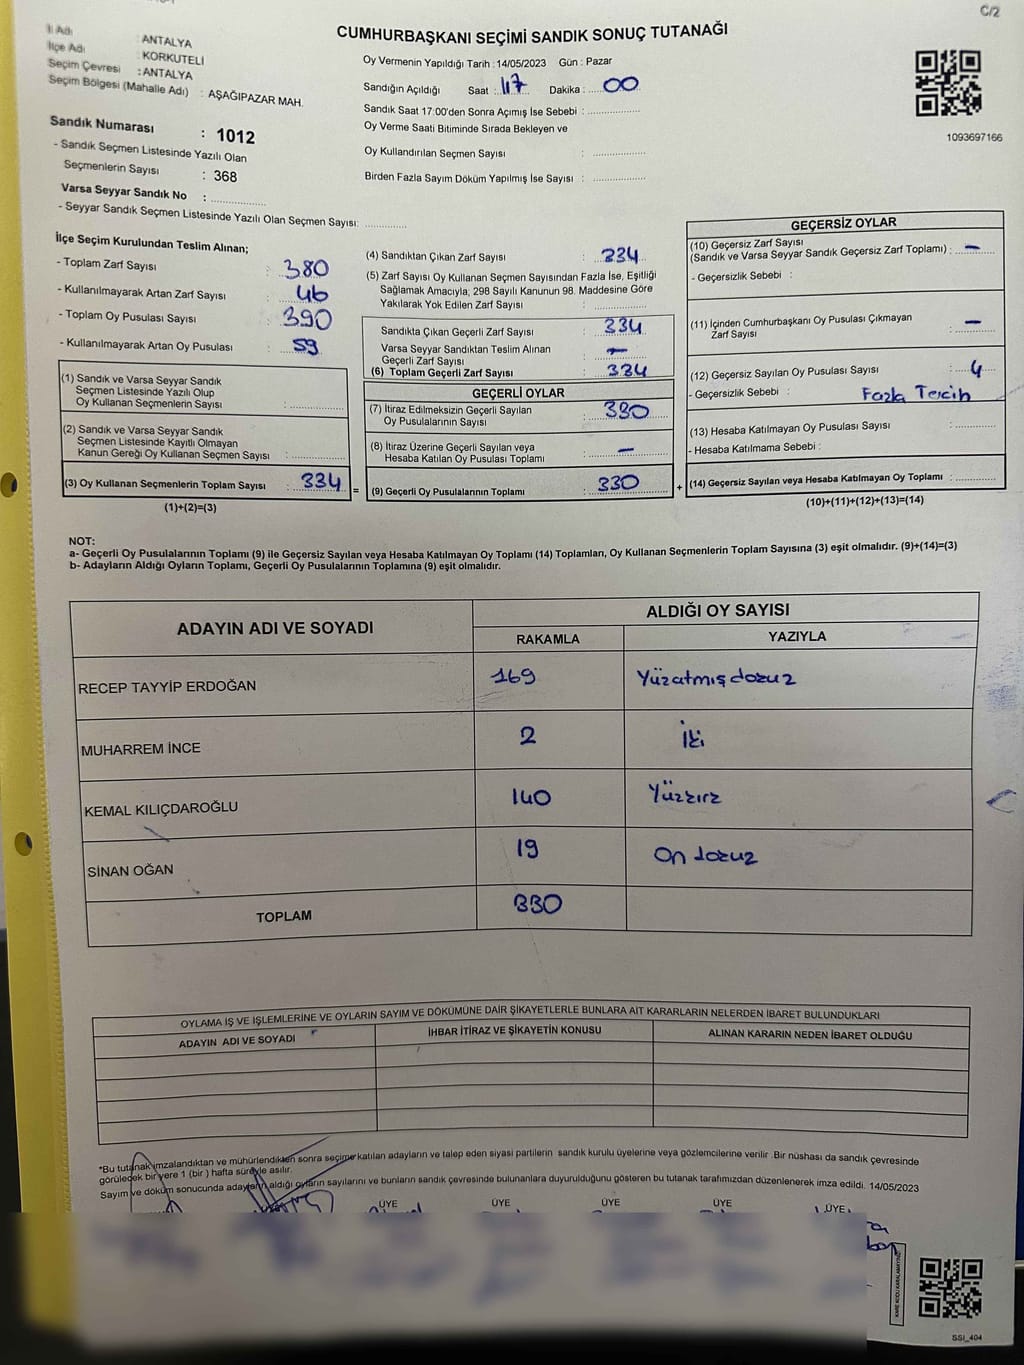 C/2
İl Adı : ANTALYA
İlçe Adı : KORKUTELİ
Seçim Çevresi : ANTALYA
Seçim Bölgesi (Mahalle Adı) : AŞAĞIPAZAR MAH.
Sandık Numarası : 1012
- Sandık Seçmen Listesinde Yazılı Olan
Seçmenlerin Sayısı : 368
Varsa Seyyar Sandık No : ..................
- Seyyar Sandık Seçmen Listesinde Yazılı Olan Seçmen Sayısı: .............
CUMHURBAŞKANI SEÇİMİ SANDIK SONUÇ TUTANAĞI
Oy Vermenin Yapıldığı Tarih : 14/05/2023 Gün : Pazar
Sandığın Açıldığı Saat : 17 Dakika : 00
Sandık Saat 17:00'den Sonra Açımış İse Sebebi : ................
Oy Verme Saati Bitiminde Sırada Bekleyen ve
Oy Kullandırılan Seçmen Sayısı : ................
Birden Fazla Sayım Döküm Yapılmış İse Sayısı : ................
1093697166
İlçe Seçim Kurulundan Teslim Alınan;
- Toplam Zarf Sayısı : 380
- Kullanılmayarak Artan Zarf Sayısı : 46
- Toplam Oy Pusulası Sayısı : 390
- Kullanılmayarak Artan Oy Pusulası : 59
(1) Sandık ve Varsa Seyyar Sandık
Seçmen Listesinde Yazılı Olup
Oy Kullanan Seçmenlerin Sayısı : ................
(2) Sandık ve Varsa Seyyar Sandık
Seçmen Listesinde Kayıtlı Olmayan
Kanun Gereği Oy Kullanan Seçmen Sayısı : ................
(3) Oy Kullanan Seçmenlerin Toplam Sayısı : 334
(1)+(2)=(3)
=
(4) Sandıktan Çıkan Zarf Sayısı : 334
(5) Zarf Sayısı Oy Kullanan Seçmen Sayısından Fazla İse, Eşitliği
Sağlamak Amacıyla, 298 Sayılı Kanunun 98. Maddesine Göre
Yakılarak Yok Edilen Zarf Sayısı : ................
Sandıkta Çıkan Geçerli Zarf Sayısı : 334
Varsa Seyyar Sandıktan Teslim Alınan
Geçerli Zarf Sayısı : —
(6) Toplam Geçerli Zarf Sayısı : 334
GEÇERLİ OYLAR
(7) İtiraz Edilmeksizin Geçerli Sayılan
Oy Pusulalarının Sayısı : 330
(8) İtiraz Üzerine Geçerli Sayılan veya
Hesaba Katılan Oy Pusulası Toplamı : —
(9) Geçerli Oy Pusulalarının Toplamı : 330
+
GEÇERSİZ OYLAR
(10) Geçersiz Zarf Sayısı
(Sandık ve Varsa Seyyar Sandık Geçersiz Zarf Toplamı) : —
- Geçersizlik Sebebi :
(11) İçinden Cumhurbaşkanı Oy Pusulası Çıkmayan
Zarf Sayısı : —
(12) Geçersiz Sayılan Oy Pusulası Sayısı : 4
- Geçersizlik Sebebi : Fazla Tercih
(13) Hesaba Katılmayan Oy Pusulası Sayısı : ............
- Hesaba Katılmama Sebebi :
(14) Geçersiz Sayılan veya Hesaba Katılmayan Oy Toplamı : ............
(10)+(11)+(12)+(13)=(14)
NOT:
a- Geçerli Oy Pusulalarının Toplamı (9) ile Geçersiz Sayılan veya Hesaba Katılmayan Oy Toplamı (14) Toplamları, Oy Kullanan Seçmenlerin Toplam Sayısına (3) eşit olmalıdır. (9)+(14)=(3)
b- Adayların Aldığı Oyların Toplamı, Geçerli Oy Pusulalarının Toplamına (9) eşit olmalıdır.
ADAYIN ADI VE SOYADI
ALDIĞI OY SAYISI
RAKAMLA YAZIYLA
RECEP TAYYİP ERDOĞAN 169 Yüzatmışdokuz
MUHARREM İNCE 2 İki
KEMAL KILIÇDAROĞLU 140 Yüzkırk
SİNAN OĞAN 19 On dokuz
TOPLAM 330
OYLAMA İŞ VE İŞLEMLERİNE VE OYLARIN SAYIM VE DÖKÜMÜNE DAİR ŞİKAYETLERLE BUNLARA AİT KARARLARIN NELERDEN İBARET BULUNDUKLARI
ADAYIN ADI VE SOYADI İHBAR İTİRAZ VE ŞİKAYETİN KONUSU ALINAN KARARIN NEDEN İBARET OLDUĞU
*Bu tutanak imzalandıktan ve mühürlendikten sonra seçime katılan adayların ve talep eden siyasi partilerin sandık kurulu üyelerine veya gözlemcilerine verilir .Bir nüshası da sandık çevresinde
görülecek bir yere 1 (bir ) hafta süreyle asılır.
Sayım ve döküm sonucunda adayların aldığı oyların sayılarını ve bunların sandık çevresinde bulunanlara duyurulduğunu gösteren bu tutanak tarafımızdan düzenlenerek imza edildi. 14/05/2023
ÜYE ÜYE ÜYE ÜYE ÜYE
SSI_404